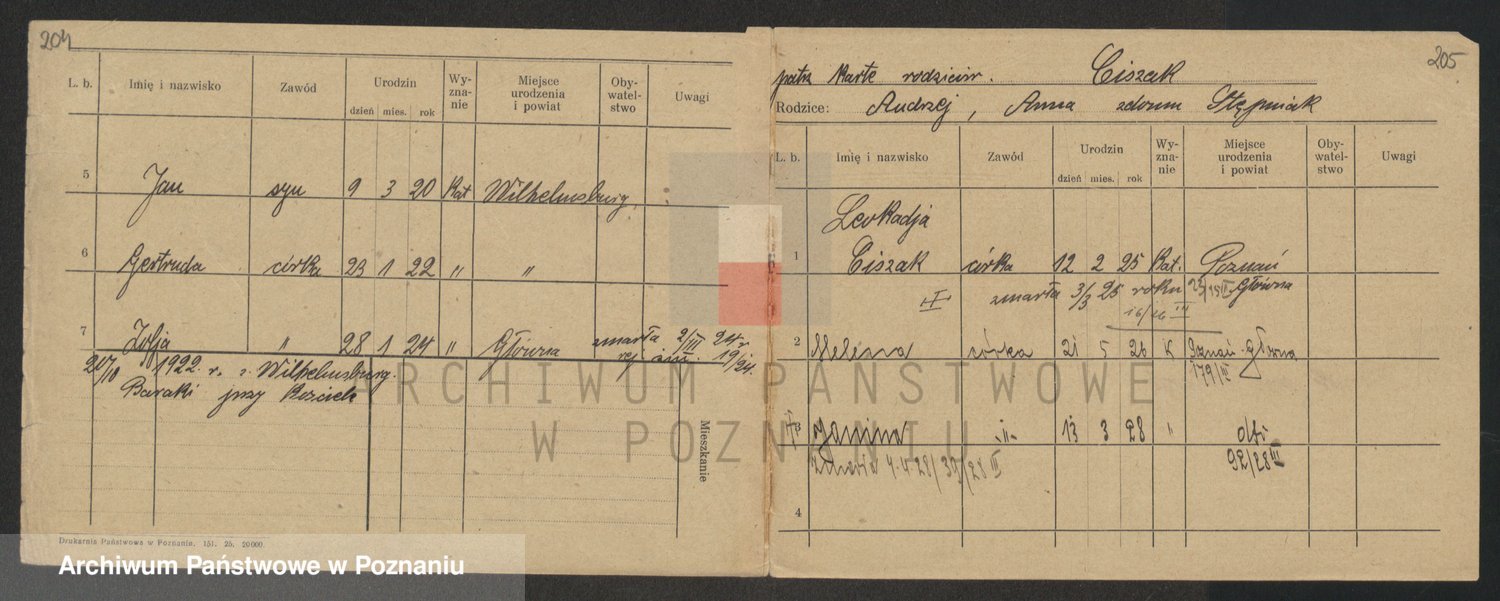 204
L. b. Imię i nazwisko Zawód Urodzin dzień mies. rok Wy-zna-nie Miejsce urodzenia i powiat Oby-watel-stwo Uwagi
5 Jan syn 9 3 20 Kat Wilhelmsburg.
6 Gertruda córka 23 1 22 " "
7 Zofja " 28 1 24 " Główna zmarła 2/III 24 r
19/24.
1922. r. z. Wilhelmsburg.
Baraki przy Kościele
Mieszkanie
Drukarnia Państwowa w Poznaniu. 151. 25. 20000.
205.
patrz Kartę rodziców. Ciszak
Rodzice: Andrzej, Anna zdomu Stępniak
L. b. Imię i nazwisko Zawód Urodzin dzień mies. rok Wy-zna-nie Miejsce urodzenia i powiat Oby-watel-stwo Uwagi
Leokadja
1 Ciszak córka 12 2 25 Kat. Poznań
zmarła 3/3 25 roku Główna
16/26 III
2 Helena córka 21 5 26 K Poznań-Główna
179/III
3 Janina -"- 13 3 28 "
92/28 III
zmarła 4.4.28/39/28 II
4
ARCHIWUM PAŃSTWOWE
W POZNANIU
Archiwum Państwowe w Poznaniu